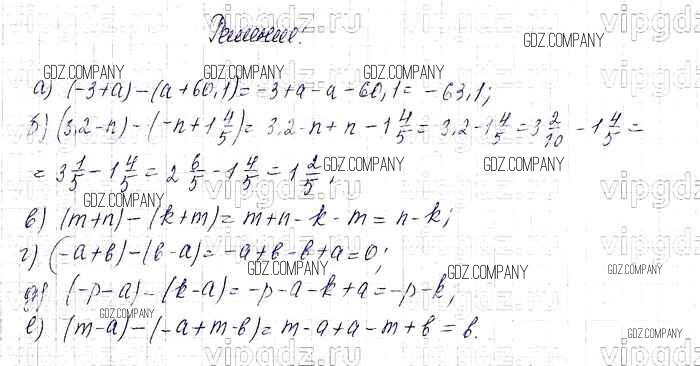 vipgdz.ru
Решение:
GDZ.COMPANY
GDZ.COMPANY GDZ.COMPANY GDZ.COMPANY
а) (-3+a)-(a+60,1)=-3+a-a-60,1=-63,1;
б) (3,2-n)-(-n+1 4/5)=3,2-n+n-1 4/5=3,2-1 4/5=3 2/10-1 4/5=
=3 1/5-1 4/5=2 6/5-1 4/5=1 2/5;
GDZ.COMPANY GDZ.COMPANY
GDZ.COMPANY
в) (m+n)-(k+m)=m+n-k-m=n-k;
г) (-a+b)-(b-a)=-a+b-b+a=0;
GDZ.COMPANY GDZ.COMPANY
GDZ.COMPANY
д) (-p-a)-(k-a)=-p-a-k+a=-p-k;
GDZ.COMPANY
е) (m-a)-(-a+m-b)=m-a+a-m+b=b.
GDZ.COMPANY
vipgdz.ru vipgdz.ru